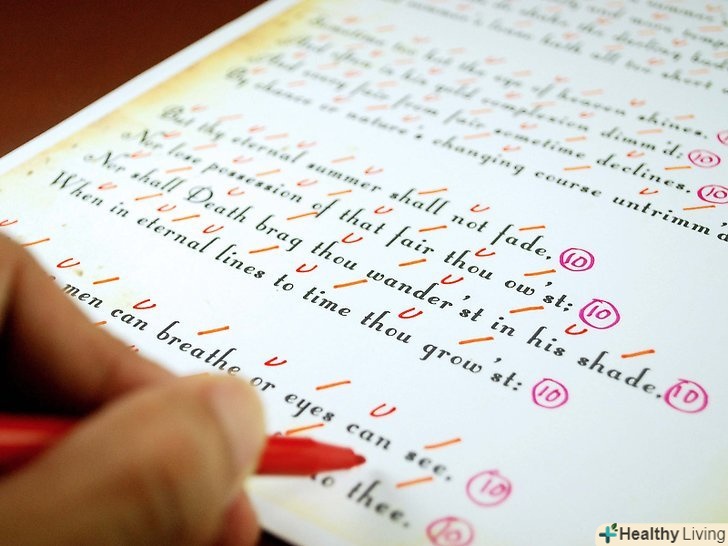 summer's lease hath all too short
Sometime too hot the eye of heaven shines,
And often is his gold complexion dimm'd; 10
And every fair from fair sometime declines, 10
By chance or nature's changing course untrimm'd
But thy eternal summer shall not fade, 10
Nor lose possession of that fair thou ow'st; 10
Nor shall Death brag thou wander'st in his shade, 10
When in eternal lines to time thou grow'st: 10
men can breathe or eyes can see, 10
to thee. 10
Healthy Living